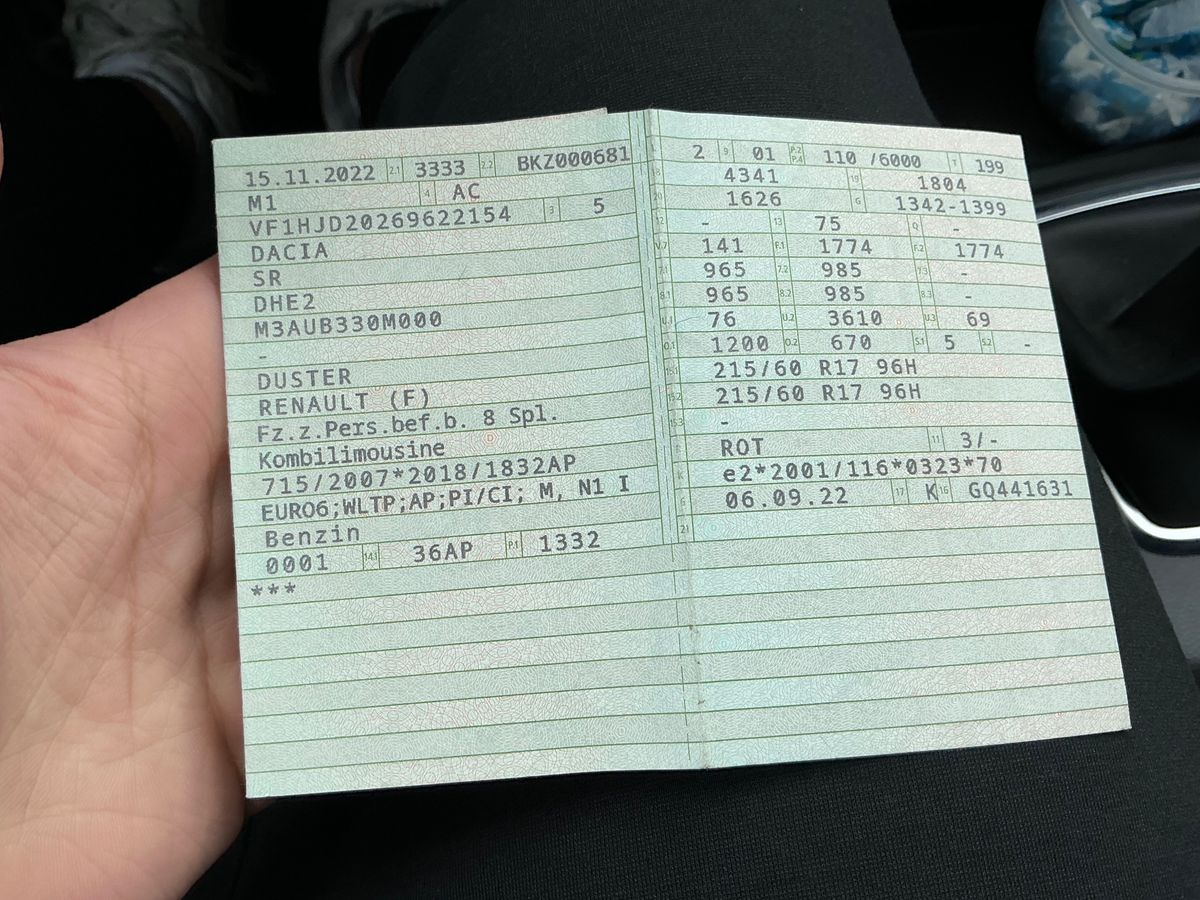 15.11.2022 2.1 3333 2.2 BKZ000681
M1 4 AC
VF1HJD20269622154 3 5
DACIA
SR
DHE2
M3AUB330M000
-
DUSTER
RENAULT (F)
Fz.z.Pers.bef.b. 8 Spl.
Kombilimousine
715/2007*2018/1832AP
EURO6;WLTP;AP;PI/CI; M, N1 I
Benzin
0001 14.1 36AP P.1 1332
***
2 9 01 P.2 P.4 110 /6000 T 199
4341 19 1804
1626 G 1342-1399
- 13 75 Q -
V.7 141 F.1 1774 F.2 1774
7.1 965 7.2 985 7.3 -
8.1 965 8.2 985 8.3 -
U.1 76 U.2 3610 U.3 69
O.1 1200 O.2 670 S.1 5 S.2 -
15.1 215/60 R17 96H
15.2 215/60 R17 96H
15.3 -
ROT 11 3/-
K e2*2001/116*0323*70
6 06.09.22 17 K 16 GQ441631
21